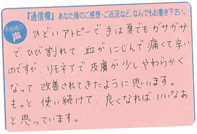 『通信欄』あなた様のご感想・ご近況など、なんでもお書き下さい。
お客様の声
ひどいアトピーで手は夏でもガサガサ
でひび割れて血がにじんで痛くて辛い
のですが、リモネアで皮膚が少しやわらかく
なって改善されてきたように思います。
もっと使い続けて、良くなればいいなぁ
と思っています。